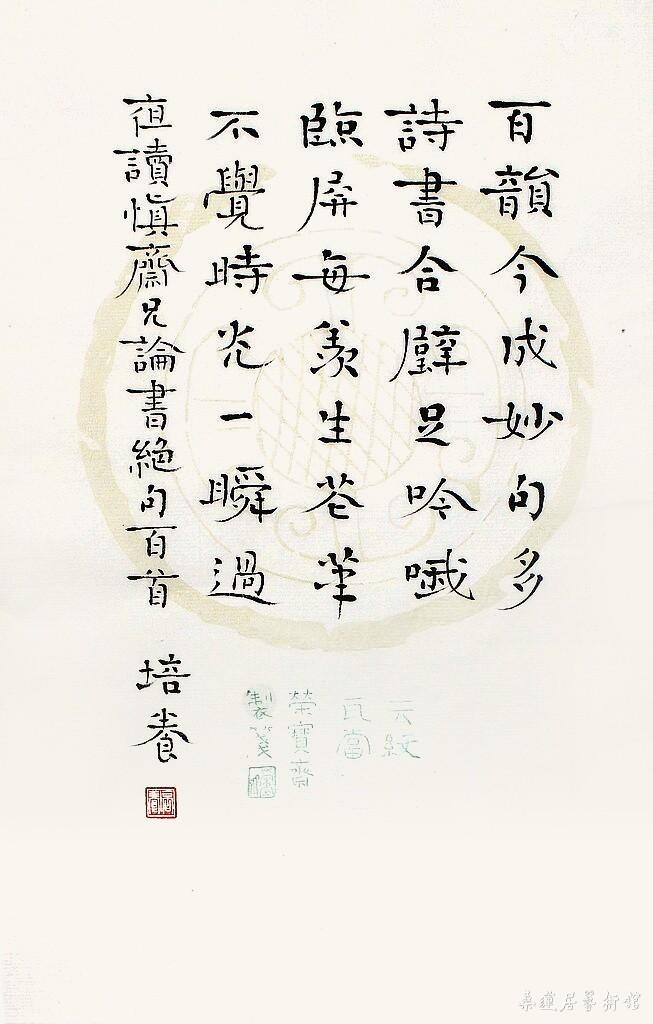 百韻今成妙句多
詩書合璧足吟哦
臨屏每羨生花筆
不覺時光一瞬過
亱讀慎齋兄論書絕句百首 培養
云紋
瓦當
榮寶齋
製箋
桑蓮居藝術館